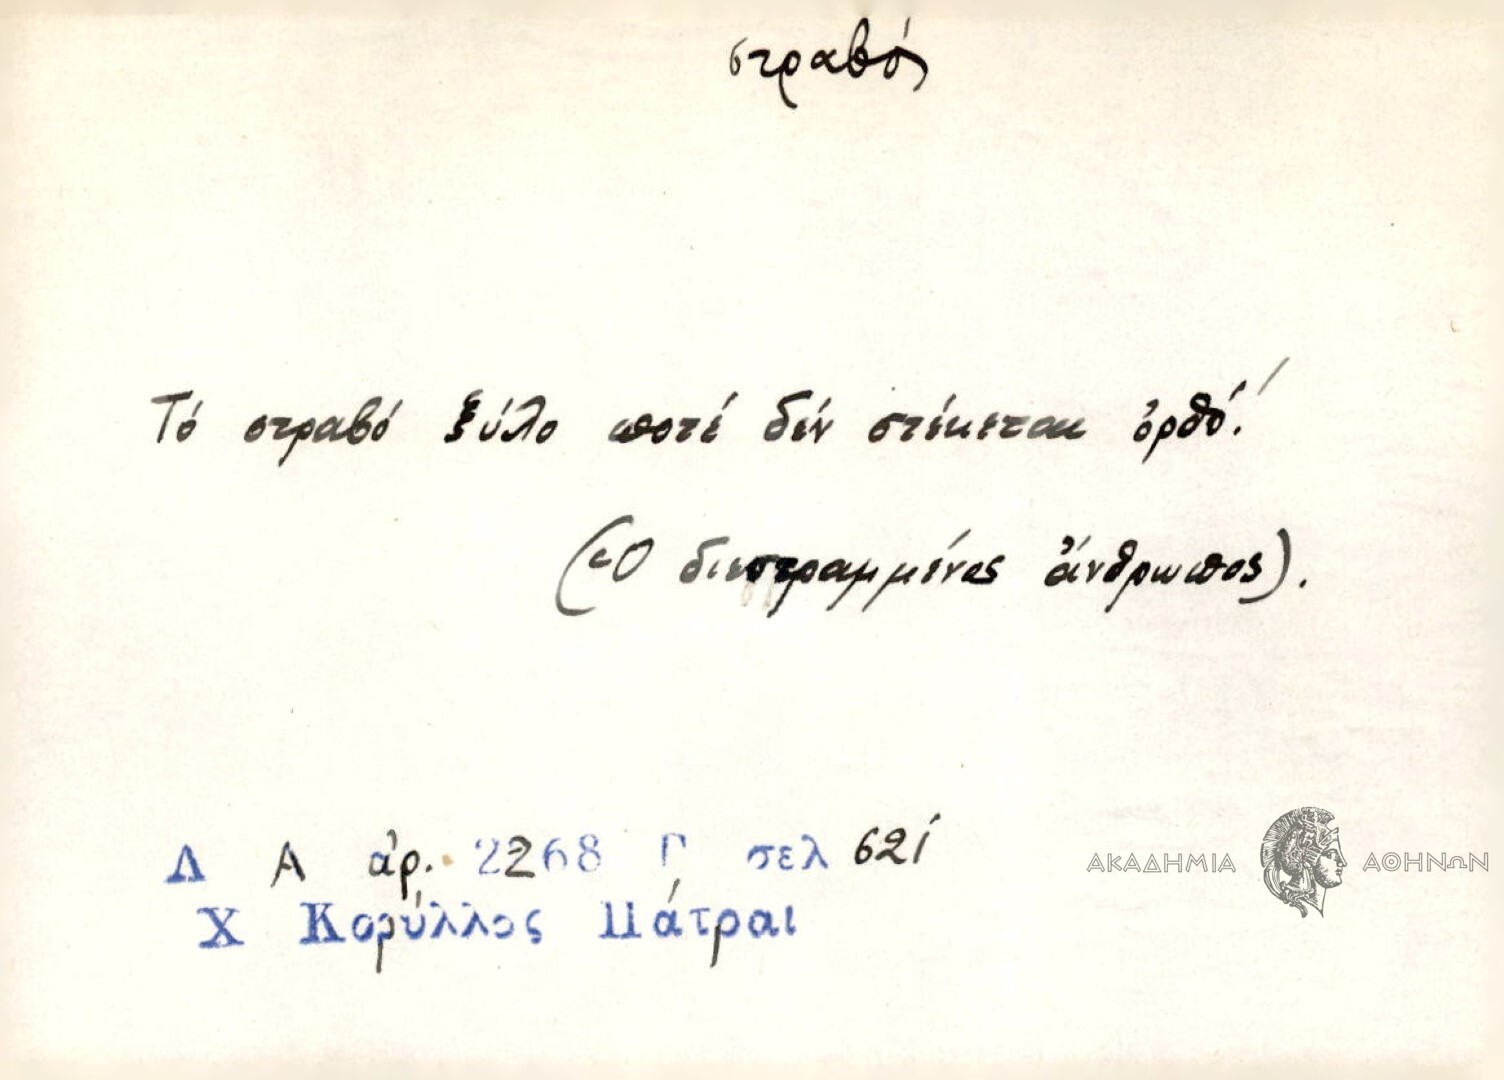 στραβός
Τό στραβό ξύλο ποτέ δέν στέκεται ὀρθό!
(Ὁ διεστραμμένος ἄνθρωπος).
Λ Α ἀρ. 2268 Γ σελ 621
Χ Κορύλλος Πάτραι
ΑΚΑΔΗΜΙΑ ΑΘΗΝΩΝ